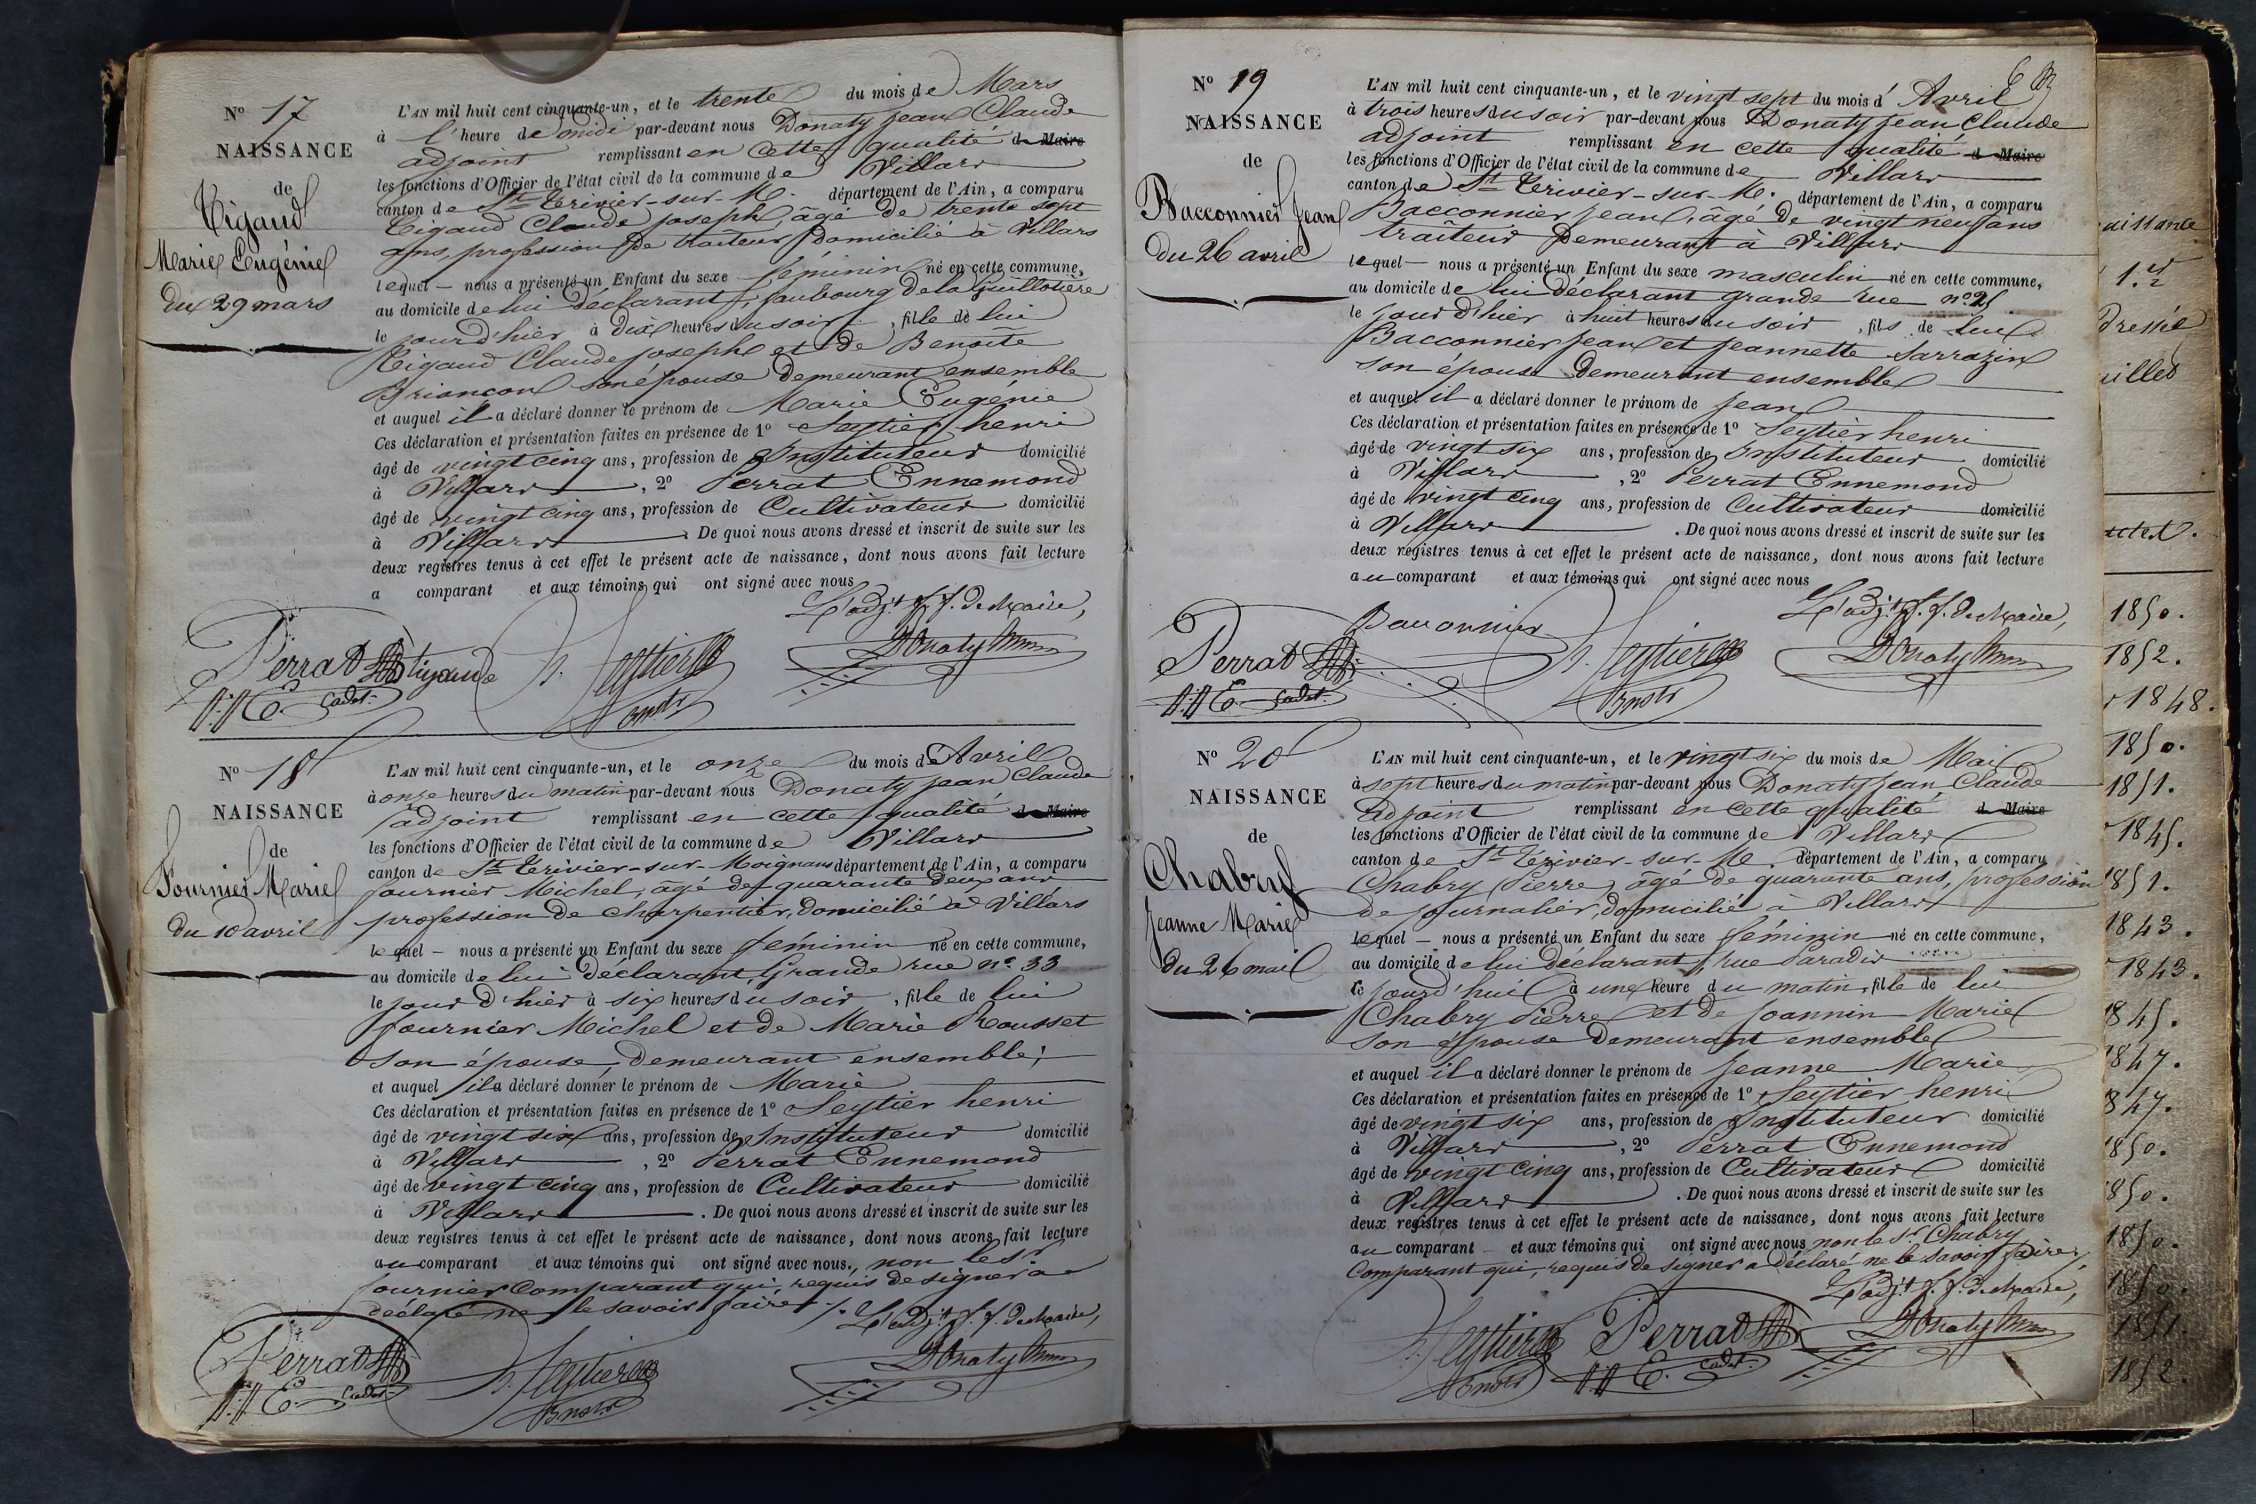 N° 17
NAISSANCE
de
Tigaud
Marie Eugénie
du 29 mars
L'AN mil huit cent cinquante-un, et le trente du mois de Mars
à l'heure de midi par-devant nous Donaty Jean Claude
adjoint remplissant en cette qualité d Maire
les fonctions d'Officier de l'état civil de la commune de Villars
canton de St Trivier-sur-M. département de l'Ain, a comparu
Tigaud Claude Joseph, âgé de trente sept
ans, profession de traiteur, domicilié à Villars
lequel nous a présenté un Enfant du sexe féminin né en cette commune,
au domicile de lui déclarant, faubourg de la Guillotière
le jour d'hier à dix heures du soir, fille de lui
Tigaud Claude Joseph et de Benoîte
Briancon son épouse demeurant ensemble
et auquel il a déclaré donner le prénom de Marie Eugénie
Ces déclaration et présentation faites en présence de 1° Seytier henri
âgé de vingt cinq ans, profession de Instituteur domicilié
à Villars, 2° Perrat Ennemond
âgé de vingt cinq ans, profession de Cultivateur domicilié
à Villars. De quoi nous avons dressé et inscrit de suite sur les
deux registres tenus à cet effet le présent acte de naissance, dont nous avons fait lecture
a comparant et aux témoins qui ont signé avec nous
L'adj.t f. f. de Maire,
Perrat tigaud h. Seytier Donaty
E. Cadet
N° 18
NAISSANCE
de
Fournier Marie
du 10 avril
L'AN mil huit cent cinquante-un, et le onze du mois d'Avril
à onze heures du matin par-devant nous Donaty Jean Claude
adjoint remplissant en cette qualité d Maire
les fonctions d'Officier de l'état civil de la commune de Villars
canton de St Trivier-sur-Moignans département de l'Ain, a comparu
fournier Michel, âgé de quarante deux ans
profession de Charpentier, domicilié à Villars
lequel nous a présenté un Enfant du sexe féminin né en cette commune,
au domicile de lui déclarant, Grande rue n° 33
le jour d'hier à six heures du soir, fille de lui
fournier Michel et de Marie Rousset
son épouse, demeurant ensemble;
et auquel il a déclaré donner le prénom de Marie
Ces déclaration et présentation faites en présence de 1° Seytier henri
âgé de vingt six ans, profession de Instituteur domicilié
à Villars, 2° Perrat Ennemond
âgé de vingt cinq ans, profession de Cultivateur domicilié
à Villars. De quoi nous avons dressé et inscrit de suite sur les
deux registres tenus à cet effet le présent acte de naissance, dont nous avons fait lecture
au comparant et aux témoins qui ont signé avec nous, non le Sr
fournier comparant qui, requis de signer a
déclaré ne le savoir faire ./. L'adj.t f. f. de Maire,
Perrat h. Seytier Donaty
E. Cadet
N° 19
NAISSANCE
de
Bacconnier Jean
du 26 avril
6
L'AN mil huit cent cinquante-un, et le vingt sept du mois d'Avril
à trois heures du soir par-devant nous Donaty Jean Claude
adjoint remplissant en cette qualité d Maire
les fonctions d'Officier de l'état civil de la commune de Villars
canton de St Trivier-sur-M. département de l'Ain, a comparu
Bacconnier Jean, âgé de vingt neuf ans
traiteur demeurant à Villars
lequel nous a présenté un Enfant du sexe masculin né en cette commune,
au domicile de lui déclarant grande rue n°
le jour d'hier à huit heures du soir, fils de lui
Bacconnier Jean et Jeannette Sarrazin
son épouse demeurant ensemble
et auquel il a déclaré donner le prénom de Jean
Ces déclaration et présentation faites en présence de 1° Seytier henri
âgé de vingt six ans, profession de Instituteur domicilié
à Villars, 2° Perrat Ennemond
âgé de vingt cinq ans, profession de Cultivateur domicilié
à Villars. De quoi nous avons dressé et inscrit de suite sur les
deux registres tenus à cet effet le présent acte de naissance, dont nous avons fait lecture
au comparant et aux témoins qui ont signé avec nous
L'adj.t f. f. de Maire,
Perrat h. Seytier Donaty
E. Cadet
N° 20
NAISSANCE
de
Chabry
Jeanne Marie
du 26 mai
L'AN mil huit cent cinquante-un, et le vingt six du mois de Mai
à sept heures du matin par-devant nous Donaty Jean Claude
adjoint remplissant en cette qualité d Maire
les fonctions d'Officier de l'état civil de la commune de Villars
canton de St Trivier-sur-M. département de l'Ain, a comparu
Chabry Pierre, âgé de quarante ans, profession
de journalier, domicilié à Villars
lequel nous a présenté un Enfant du sexe féminin né en cette commune,
au domicile de lui déclarant, rue Paradis
ce jourd'hui à une heure du matin, fille de lui
Chabry Pierre et de Joannin Marie
son épouse demeurant ensemble
et auquel il a déclaré donner le prénom de Jeanne Marie
Ces déclaration et présentation faites en présence de 1° Seytier henri
âgé de vingt six ans, profession de Instituteur domicilié
à Villars, 2° Perrat Ennemond
âgé de vingt cinq ans, profession de Cultivateur domicilié
à Villars. De quoi nous avons dressé et inscrit de suite sur les
deux registres tenus à cet effet le présent acte de naissance, dont nous avons fait lecture
au comparant et aux témoins qui ont signé avec nous non le Sr Chabry
Comparant qui, requis de signer a déclaré ne le savoir faire,
L'adj.t f. f. de Maire,
h. Seytier Perrat Donaty
E. Cadet
1850.
1852.
1848.
1850.
1851.
1845.
1851.
1843.
1843.
1845.
1847.
1847.
1850.
1850.
1850.
1850.
1851.
1852.